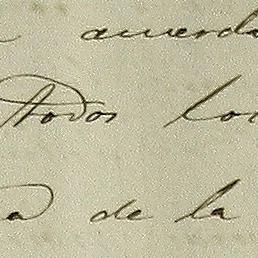 a acuerda
todos los
a de la